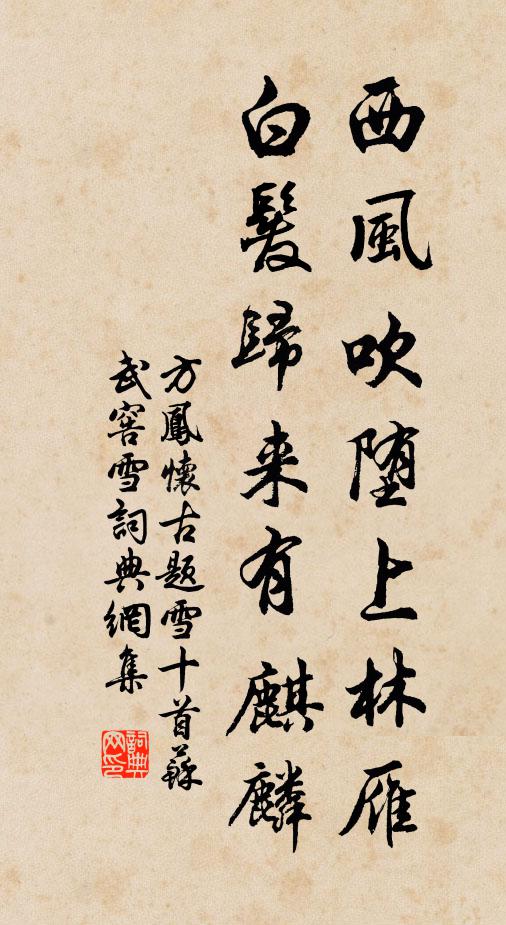 西風吹堕上林雁
白髮歸来有麒麟
方鳳懷古題雪十首蘇
武窖雪詞典網集
詞典网印